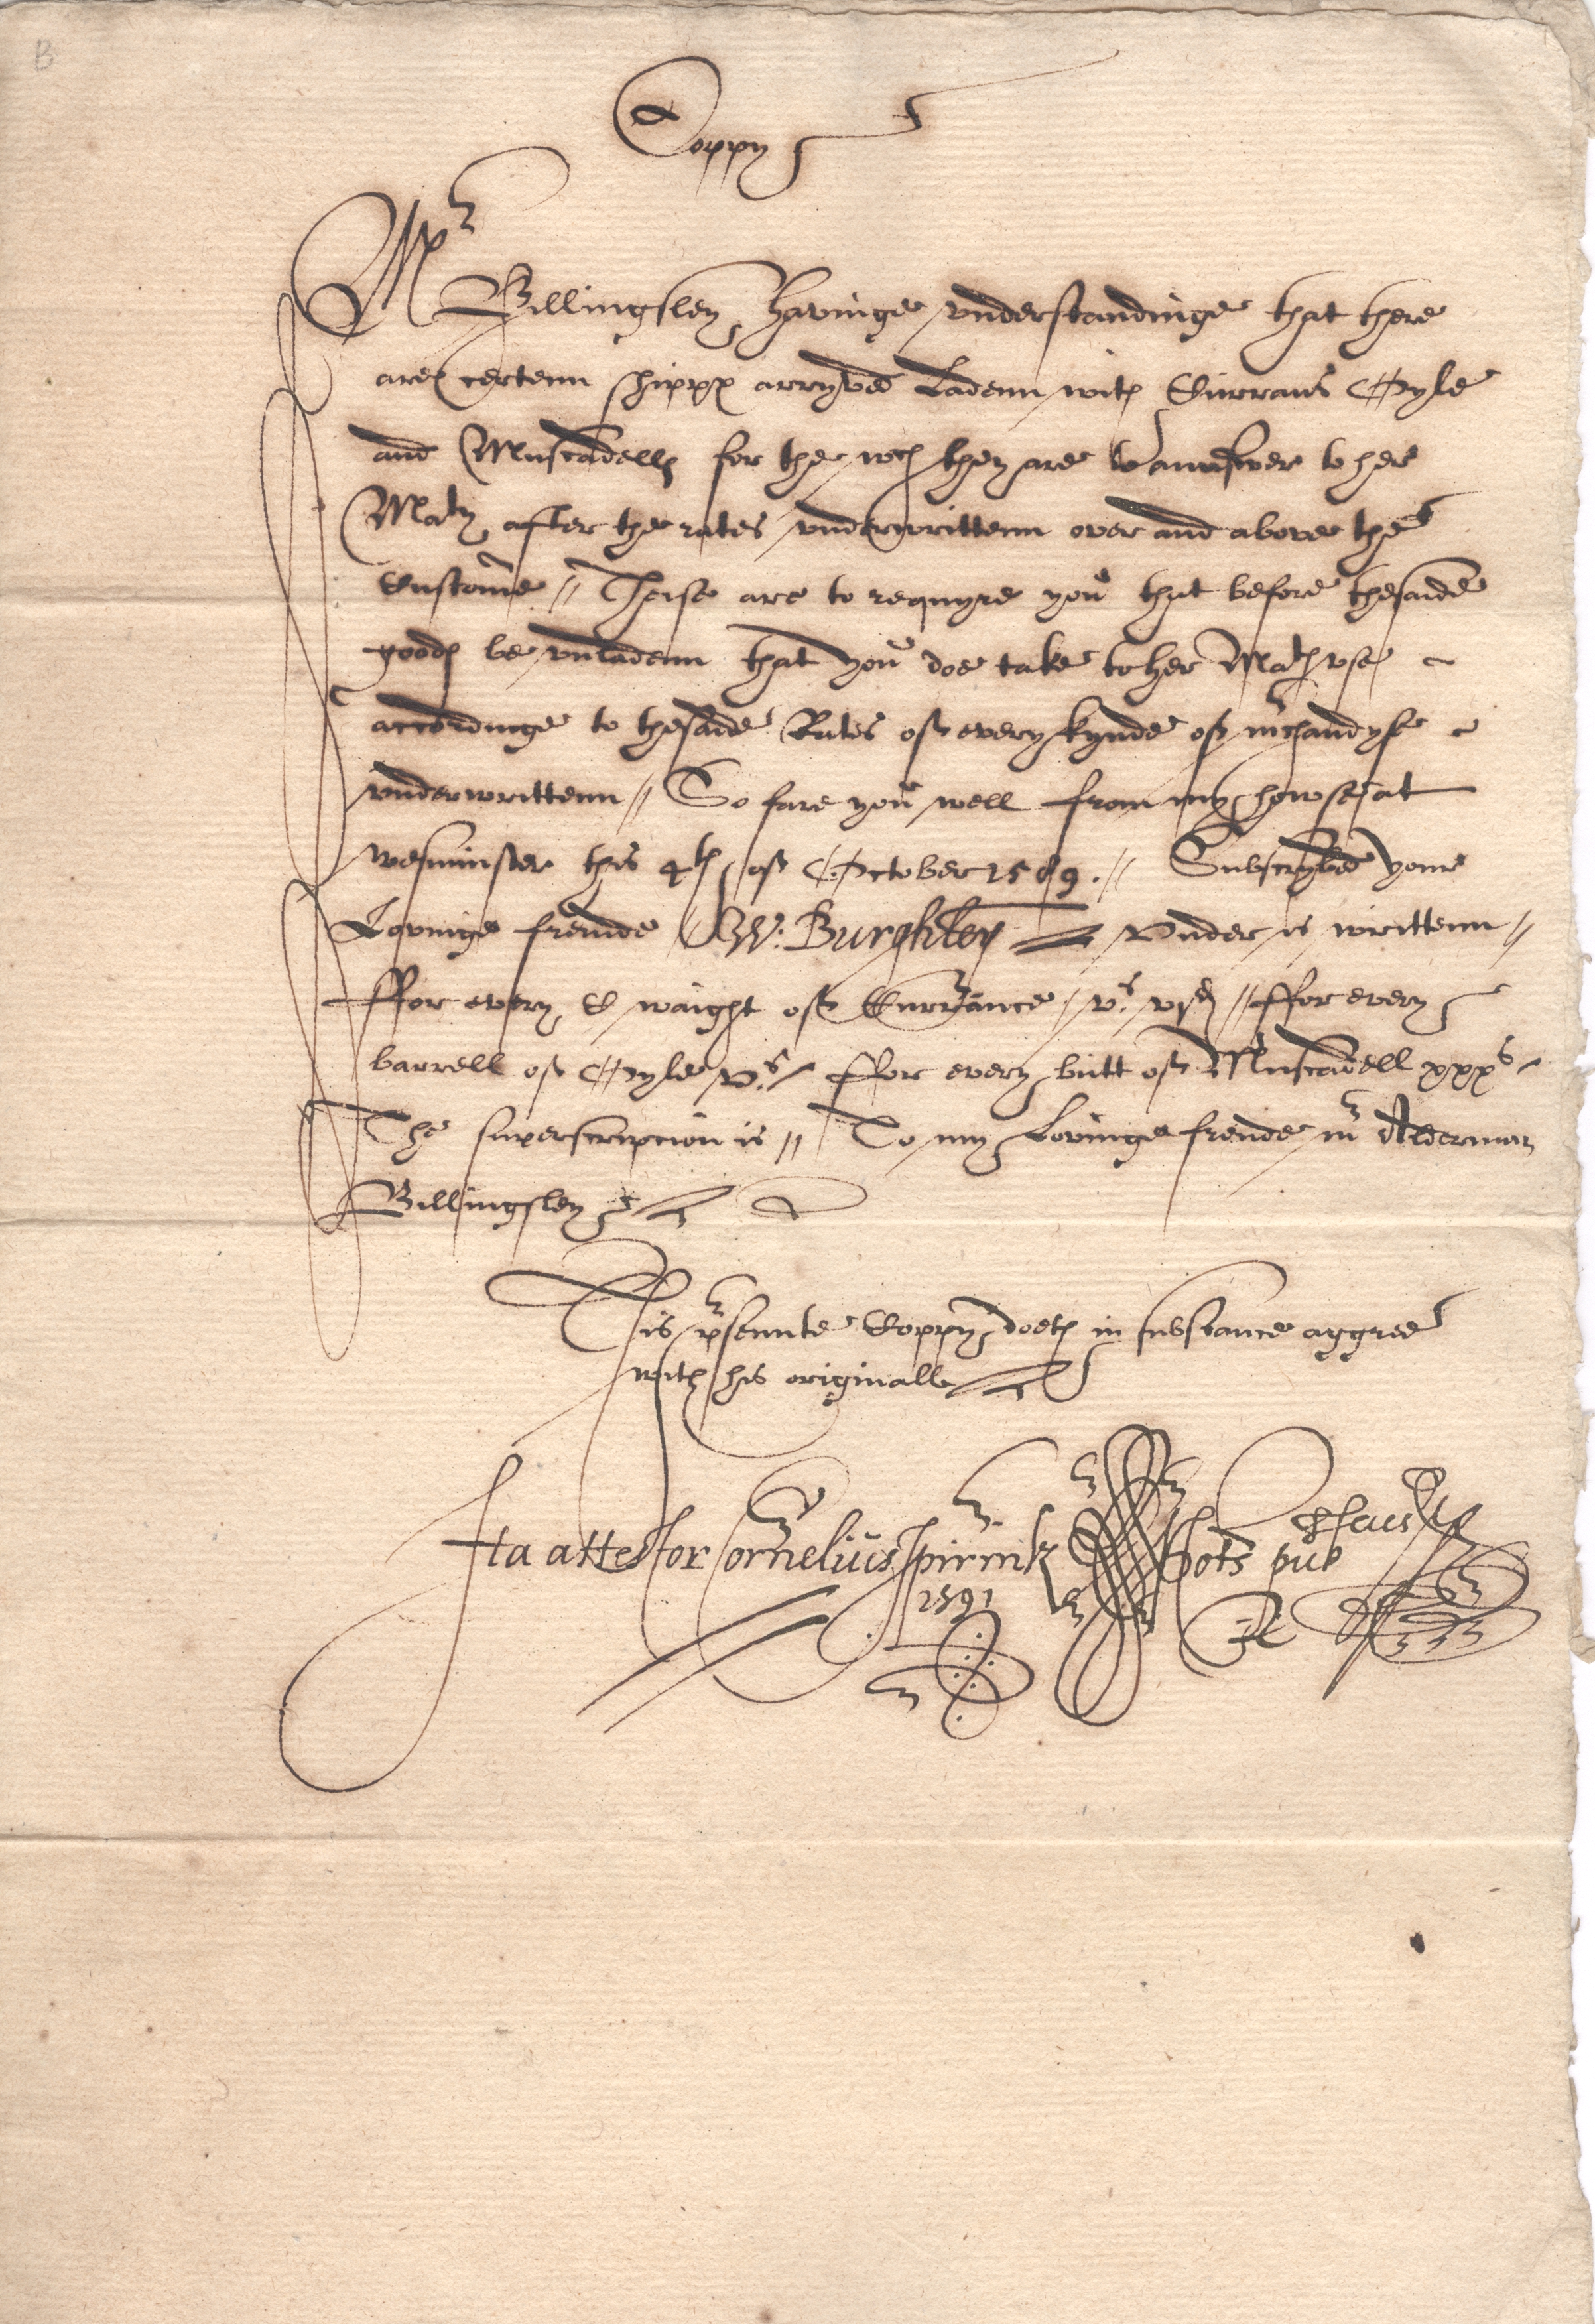 B
Coppy
Mr
Billingsley havinge vnderstandinge that there
are certenn shippes arryved Ladenn with Currans Oyle
and Muscadells for the wch they are to aunswer to her
Maty after the rates vnderwrittenn over and above the
Custome // Theise are to requyre you that before thesaide
goodes be vnladenn that you doe take to her Maties vse
accordinge to thesaide Rates of every kynde of mrchandyse
vnderwrittenn // So fare you well from my howse at
wesminster this 4th of October 1589 . // Subscrybed your
Lovinge freinde W: Burghley Vnder is writtenn //
ffor every C waight of Currance vs. vjd // ffor every
barrell of Oyle vs. / ffor every butt of Muscadell xxxs
The superscripcion is // To my Lovinge freinde mr Alderman
Billingsley
This prsennte Coppy doeth in substance aggree
with his originall
Ita attestor Cornelius Spirinck Nots pub
1591